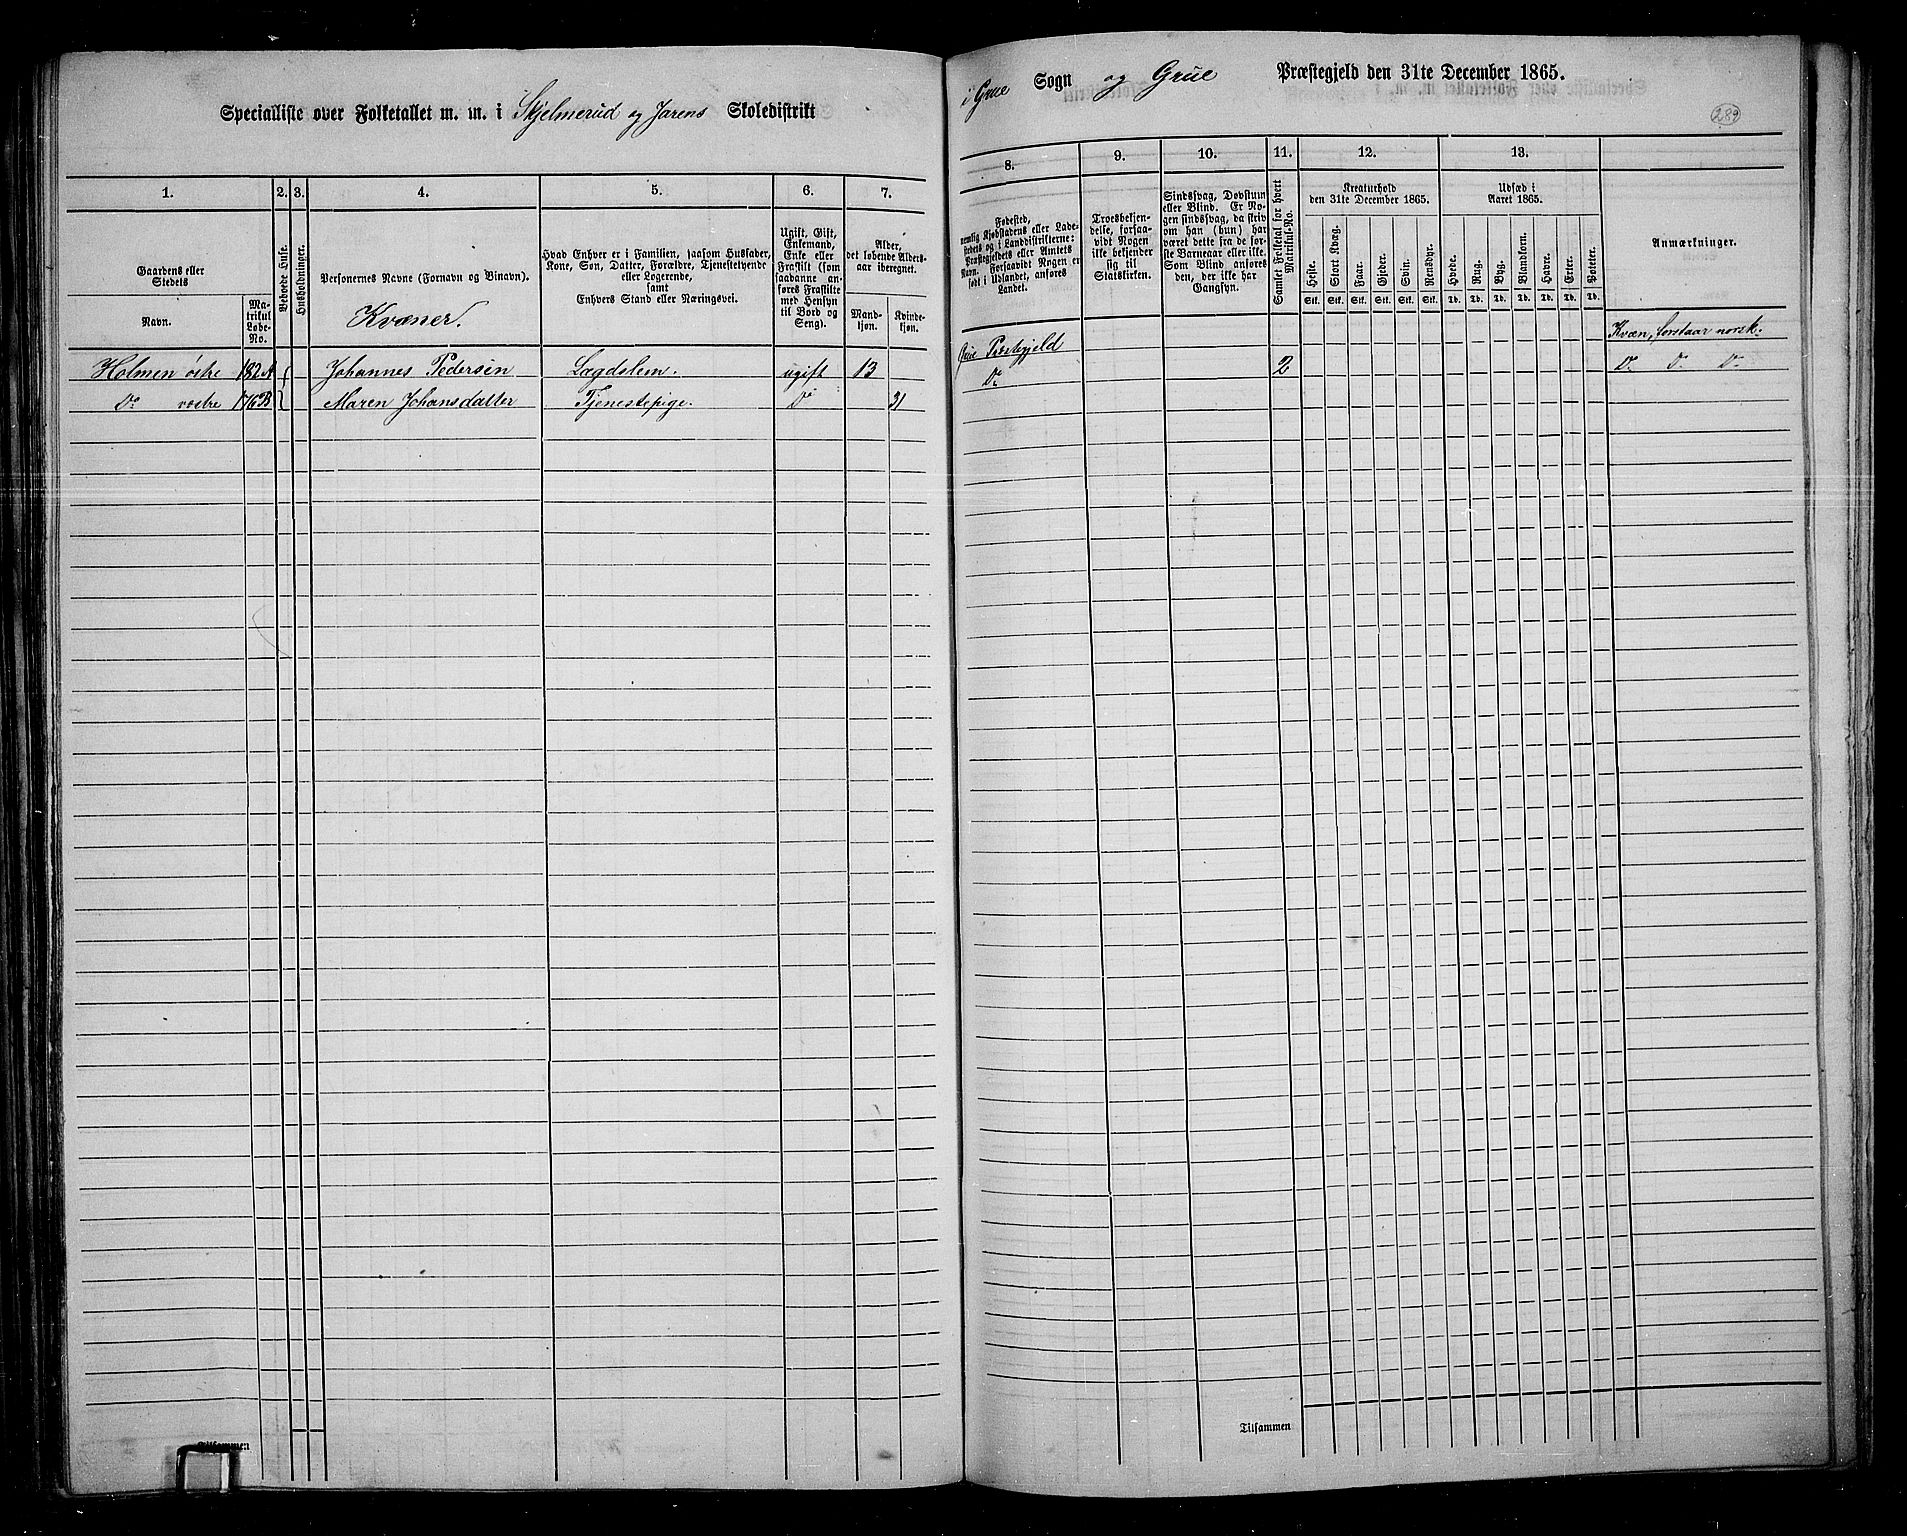 Specialliste over Folketallet m. m. i Skjelmerud og Jarens Skoledistrikt
i Grue Sogn og Grue Præstegjeld den 31te December 1865.
289
1. 2. 3. 4. 5. 6. 7.
Gaardens eller Stedets
Navn.
Matrikul Løbe-No.
Beboede Huse.
Husholdninger.
Personernes Navne (Fornavn og Binavn).
Kvæner.
Hvad Enhver er i Familien, saasom Husfader,
Kone, Søn, Datter, Forældre, Tjenestetyende
eller Logerende,
samt
Enhvers Stand eller Næringsvei.
Ugift, Gift,
Enkemand,
Enke eller
Fraskilt (som
saadanne an-
føres Fraskilte
med Hensyn
til Bord og
Seng).
Alder,
det løbende Alders-
aar iberegnet.
Mand-
kjøn.
Kvinde-
kjøn.
Holmen østre 182A Johannes Pedersen Lægdslem. ugift 13
Do vestre 176B Maren Johansdatter Tjenestepige. Do 31
8. 9. 10. 11. 12. 13.
Fødested,
nemlig Kjøbstadens eller Lade-
stedets og i Landdistrikterne:
Præstegjeldets eller Amtets
Navn. Forsaavidt Nogen er
født i Udlandet, anføres
Landet.
Troesbekjen-
delse, forsaa-
vidt Nogen
ikke bekjender
sig til
Statskirken.
Sindssvag, Døvstum
eller Blind. Er No-
gen sindssvag, da skriv
om han (hun) har
været dette fra de før-
ste Barneaar eller ikke.
Som Blind anføres
den, der ikke har
Gangsyn.
Samlet Folketal for hvert
Matrikul-No.
Kreaturhold
den 31te December 1865.
Heste. Stort Kvæg. Faar. Gjeder. Svin. Rensdyr.
Stk. Stk. Stk. Stk. Stk. Stk.
Udsæd i
Aaret 1865.
Hvede. Rug. Byg. Blandkorn. Havre. Erter. Poteter.
Td. Td. Td. Td. Td. Td. Td.
Anmærkninger.
Grue Præstegjeld Kvæn, forstaar norsk.
Do 2 Do Do Do
Tilsammen
Tilsammen